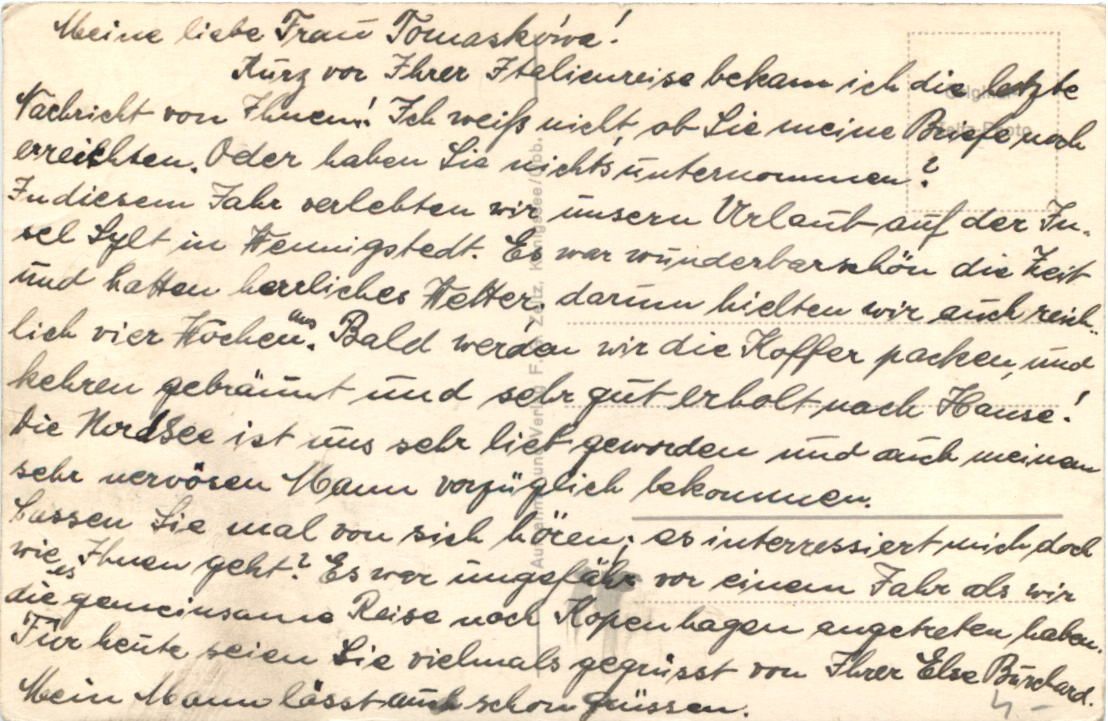 Meine liebe Frau Tomaskówa!
Kurz vor Ihrer Italienreise bekam ich die letzte
Nachricht von Ihnen! Ich weiß nicht, ob Sie meine Briefe noch
erreichten. Oder haben Sie nichts unternommen?
In diesem Jahr verlebten wir unsern Urlaub auf der In-
sel Sylt in Wennigstedt. Es war wunderbarschön die Zeit
und hatten herrliches Wetter, darum hielten wir auch reich-
lich vier Wochen aus. Bald werden wir die Koffer packen, und
kehren gebräunt und sehr gut erholt nach Hause!
Die Nordsee ist uns sehr lieb geworden und auch meinem
sehr nervösen Mann vorzüglich bekommen.
Lassen Sie mal von sich hören; es interressiert mich doch
wie es Ihnen geht? Es war ungefähr vor einem Jahr als wir
die gemeinsame Reise nach Kopenhagen angetreten haben.
Für heute seien Sie vielmals gegrüsst von Ihrer Else Burchard.
Mein Mann lässt auch schön grüssen.